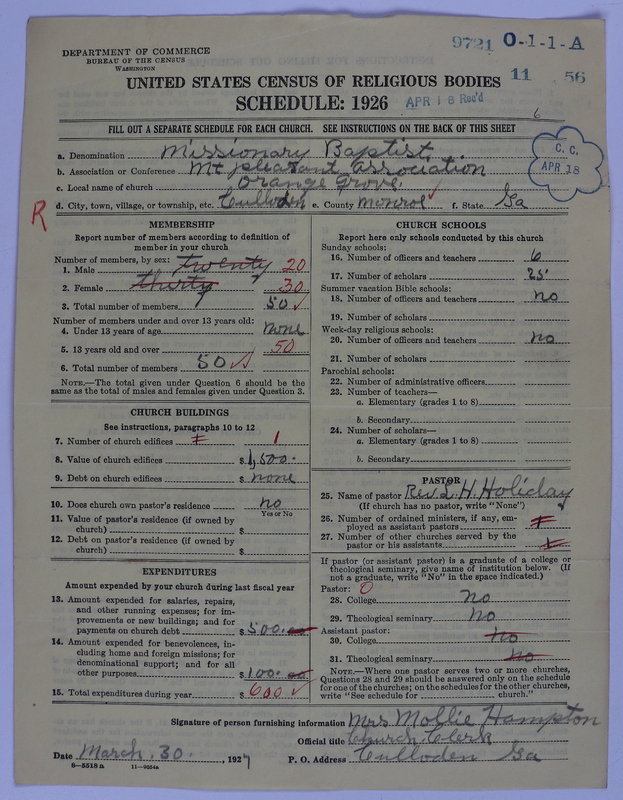 DEPARTMENT OF COMMERCE
BUREAU OF THE CENSUS
WASHINGTON
9721 O-1-1-A
11 56
UNITED STATES CENSUS OF RELIGIOUS BODIES
SCHEDULE: 1926
APR 18 Rec'd
6
FILL OUT A SEPARATE SCHEDULE FOR EACH CHURCH. SEE INSTRUCTIONS ON THE BACK OF THIS SHEET
C. C.
APR 18
a. Denomination Missionary Baptist
b. Association or Conference Mt pleasant association
c. Local name of church Orange Grove
d. City, town, village, or township, etc. Culloden e. County Monroe f. State Ga
R
MEMBERSHIP
Report number of members according to definition of
member in your church
Number of members, by sex:
1. Male twenty 20
2. Female thirty 30
3. Total number of members 50
Number of members under and over 13 years old:
4. Under 13 years of age none
5. 13 years old and over 50
6. Total number of members 50
NOTE.—The total given under Question 6 should be
same as the total of males and females given under Question 3.
CHURCH BUILDINGS
See instructions, paragraphs 10 to 12
7. Number of church edifices 1
8. Value of church edifices $1,500.
9. Debt on church edifices $ none
10. Does church own pastor's residence no
Yes or No
11. Value of pastor's residence (if owned by
church) $
12. Debt on pastor's residence (if owned by
church) $
EXPENDITURES
Amount expended by your church during last fiscal year
13. Amount expended for salaries, repairs,
and other running expenses; for im-
provements or new buildings; and for
payments on church debt $500.00
14. Amount expended for benevolences, in-
cluding home and foreign missions; for
denominational support; and for all
other purposes $100.00
15. Total expenditures during year $600
CHURCH SCHOOLS
Report here only schools conducted by this church
Sunday schools:
16. Number of officers and teachers 6
17. Number of scholars 25
Summer vacation Bible schools:
18. Number of officers and teachers no
19. Number of scholars
Week-day religious schools:
20. Number of officers and teachers no
21. Number of scholars
Parochial schools:
22. Number of administrative officers
23. Number of teachers—
a. Elementary (grades 1 to 8)
b. Secondary
24. Number of scholars—
a. Elementary (grades 1 to 8)
b. Secondary
PASTOR
25. Name of pastor Rev. L. H. Holiday
(If church has no pastor, write "None")
26. Number of ordained ministers, if any, em-
ployed as assistant pastors
27. Number of other churches served by the
pastor or his assistants
If pastor (or assistant pastor) is a graduate of a college or
theological seminary, give name of institution below. (If
not a graduate, write "No" in the space indicated.)
Pastor: 0
28. College no
29. Theological seminary no
Assistant pastor:
30. College no
31. Theological seminary no
NOTE.—Where one pastor serves two or more churches,
Questions 28 and 29 should be answered only on the schedule
for one of the churches; on the schedules for the other churches,
write "See schedule for church."
Signature of person furnishing information Mrs Mollie Hampton
Official title Church Clerk
Date March. 30. , 1927 P. O. Address Culloden Ga
8—5518 a 11—9054a